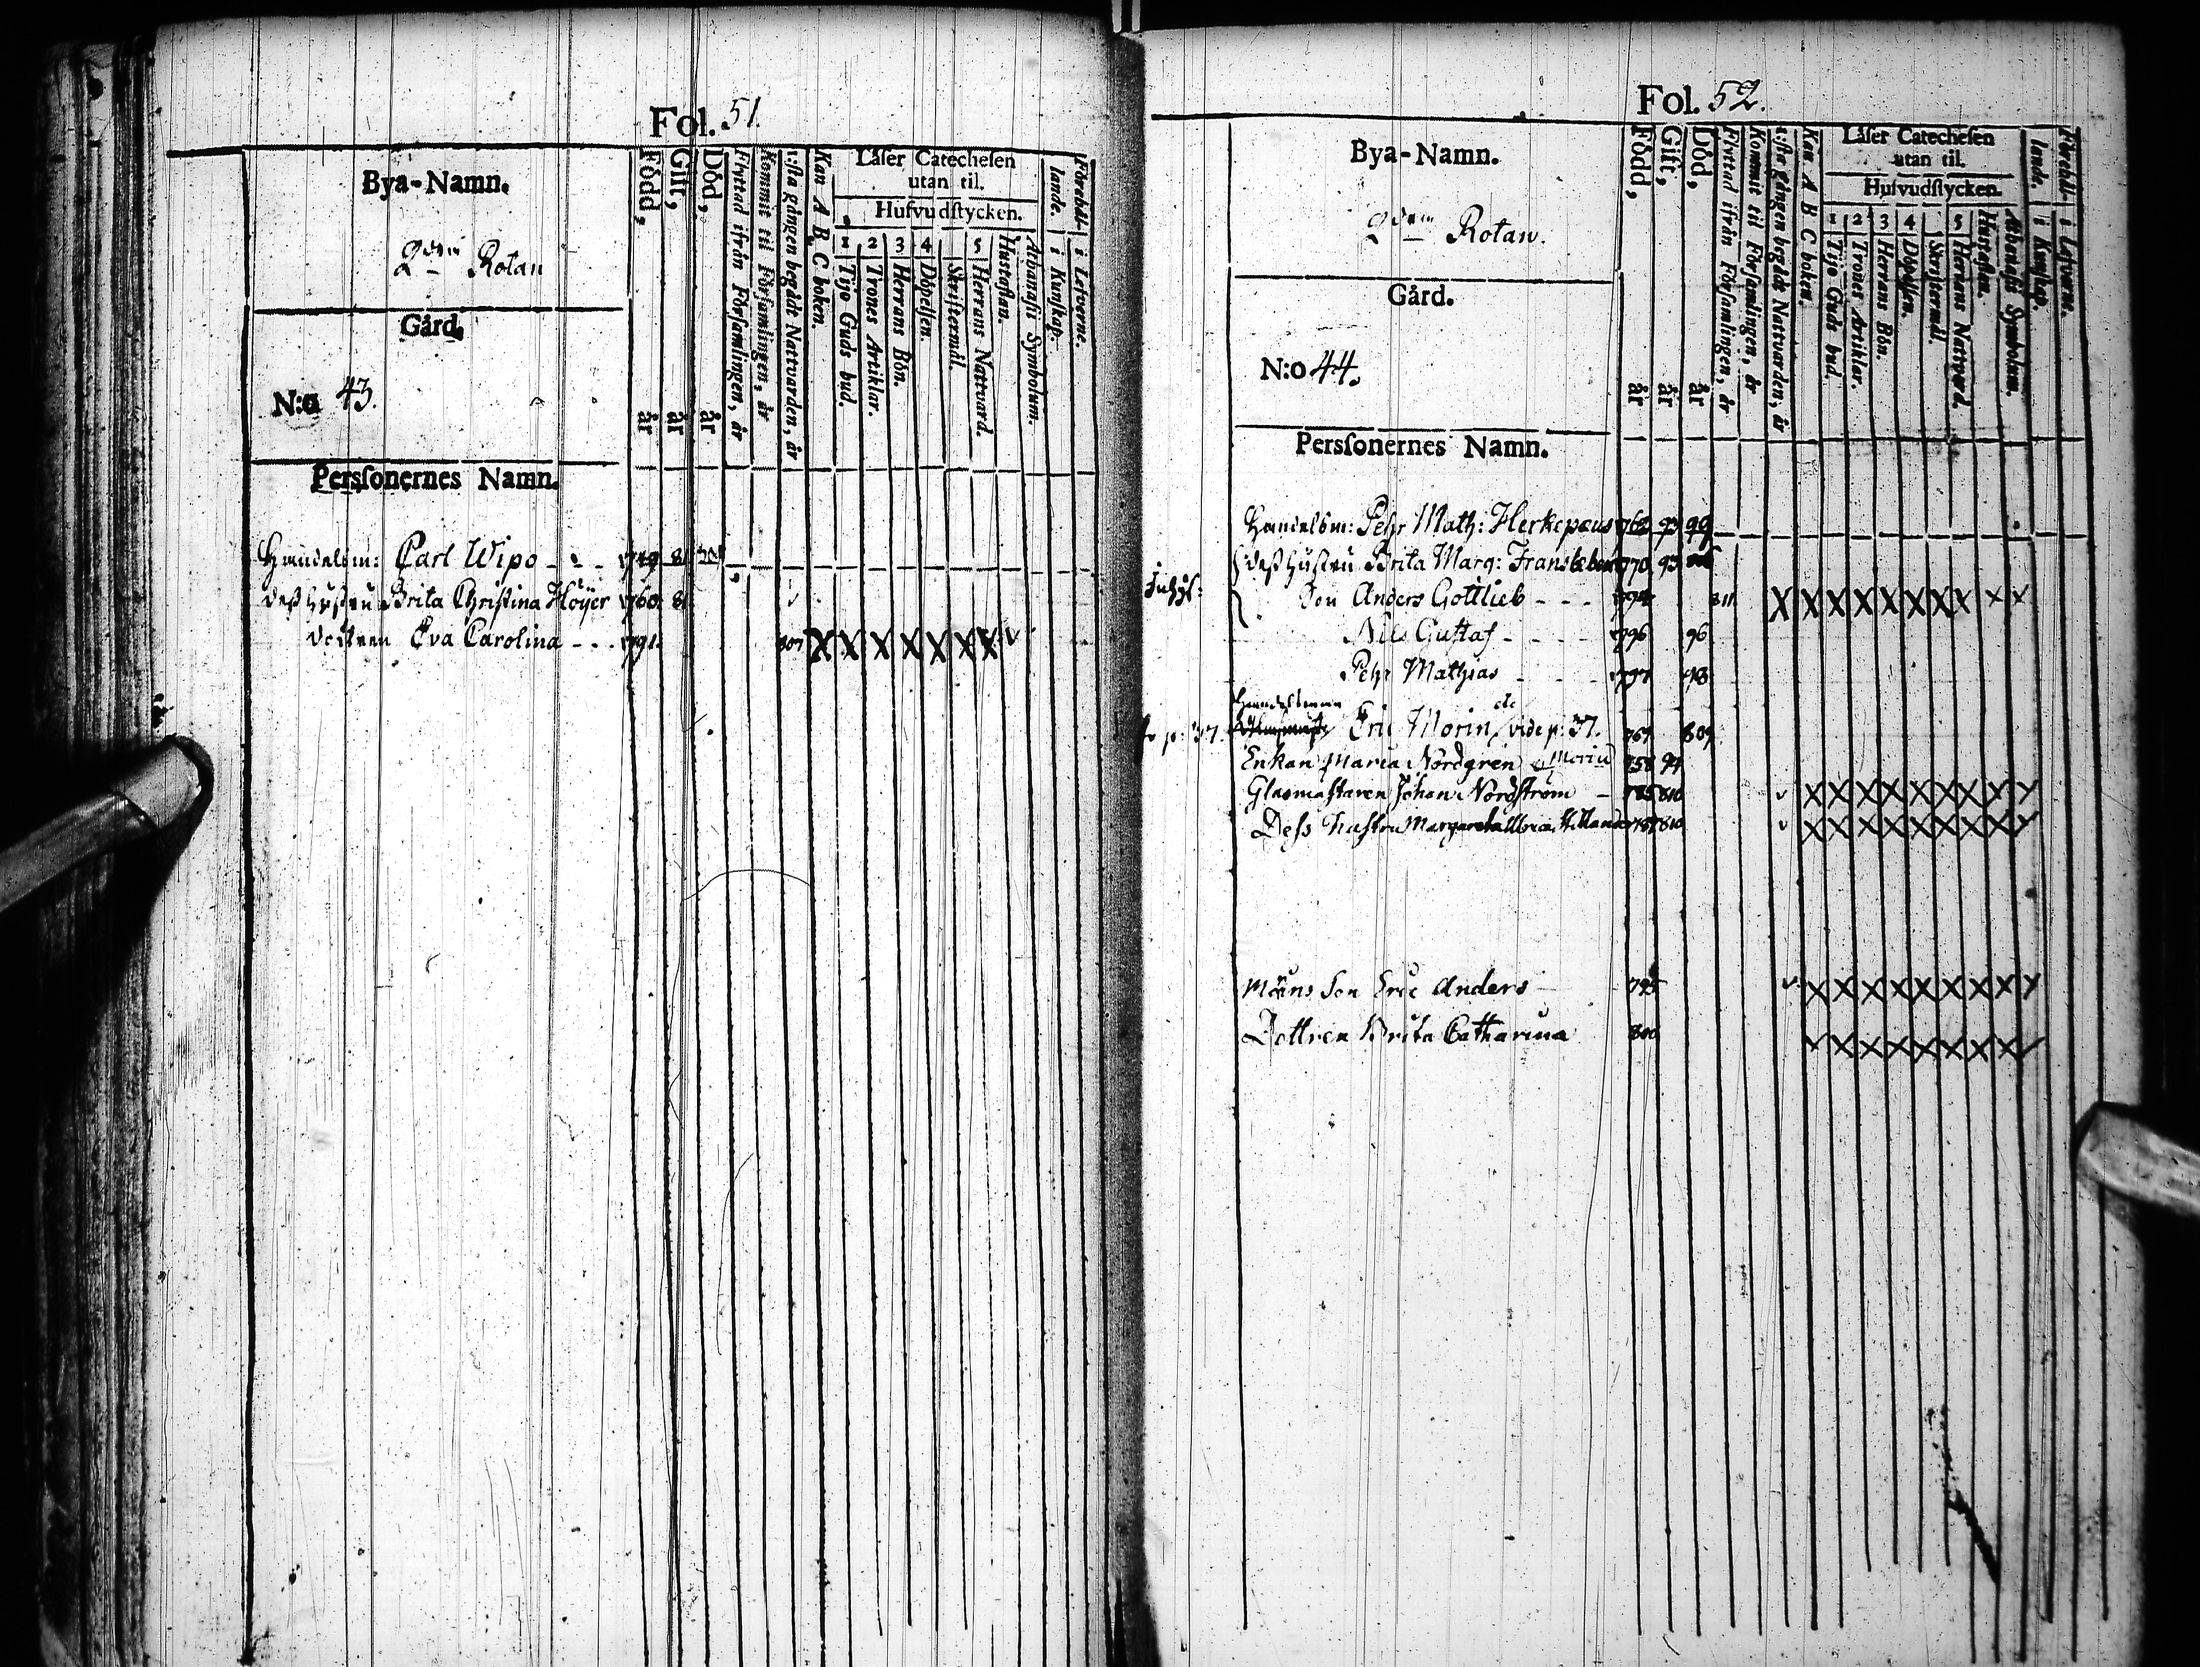 Fol. 51.
Bya-Namn.
2dra Rotan
Gård.
N:o 43.
Persſonernes Namn.
Född, år
Gift, år
Död, år
Flyttad ifrån Förſamlingen, år
Kommit til Förſamlingen, år
1:ſta gången begådt Nattvarden, år
Kan A B C boken.
Låſer Catecheſen
utan til.
Huſvudſtycken.
1 2 3 4 5
Tijo Guds bud.
Trones Artiklar.
Herrans Bön.
Döpelſen.
Skriftermål.
Herrans Nattvard.
Huſtaflan.
Athanaſii Symbolum.
Förehål-
lande.
i Kunſkap.
i Lefverne.
Handelsm: Carl Wipo - - - 1749 81
deß hustru Brita Christina Höijer 1760. 81
dottren Eva Carolina - - . 1791. 807 X X X X X X X
Fol. 52.
Bya-Namn.
2dra Rotan.
Gård.
N:o 44.
Persſonernes Namn.
Född, år
Gift, år
Död, år
Flyttad ifrån Förſamlingen, år
Kommit til Förſamlingen, år
1:ſta gången begådt Nattvarden, år
Kan A B C boken.
Låſer Catecheſen
utan til.
Huſvudſtycken.
1 2 3 4 5
Tijo Guds bud.
Trones Artiklar.
Herrans Bön.
Döpelſen.
Skriftermål.
Herrans Nattvard.
Huſtaflan.
Athanaſii Symbolum.
Förehål-
lande.
i Kunſkap.
i Lefverne.
Handelsm: Pehr Math: Herkepæus 1762 93 99
deß hustru Brita Marg: 1770 93
Son Anders Gottlieb - - - 1794 811 X X X X X X X X X X
Nils Gustaf - - - - 1796 96
Pehr Mathias - - - 1797 98
Handelsman
p: 37. Eric Morin, vide p: 37. 767 809
Enkan Maria Nordgren Morin 758 94
Glasmästaren Johan Nordström - 785 810 X X X X X X X X
Dess hustru Margaretha 787 810 X X X X X X X X
Måns Son Eric Anders 795 X X X X X X X X
Dottren Brita Catharina 800 X X X X X X X